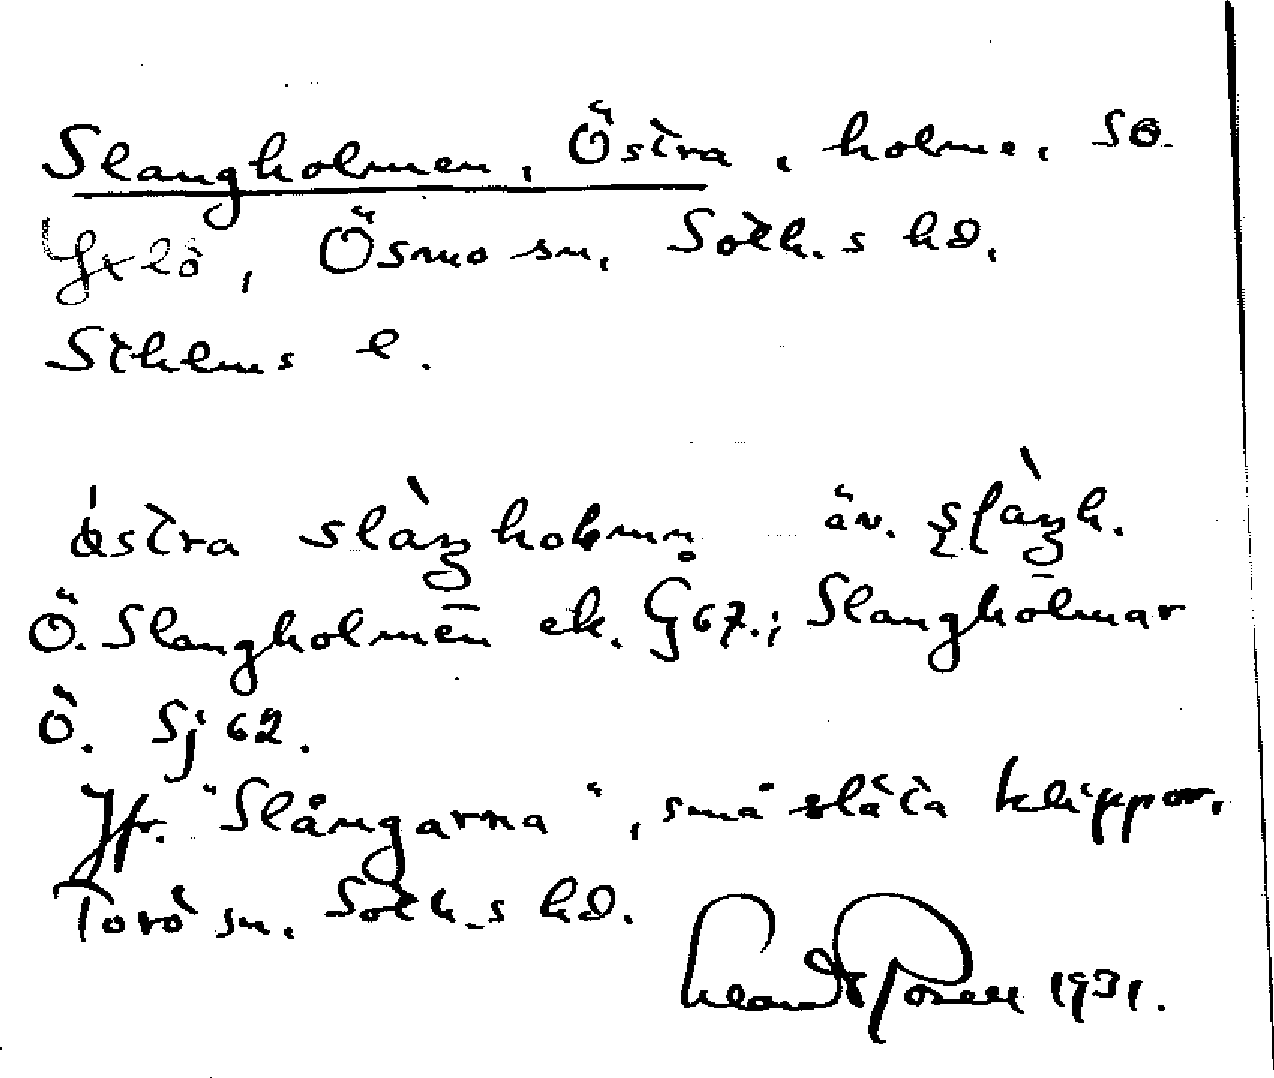 Slangholmen, Östra, holme, SO.
Yxlö, Ösmo sn, Soth.s hd.
Sthlms l.
östra slàŋholmn̥ äv. ʂḷàŋh.
Ö. Slangholmen ek. G 67.; Slangholmar
Ö. Sj 62.
Jfr. "Slångarna", små släta klippor,
Torö sn. Soth.s hd.
1931.